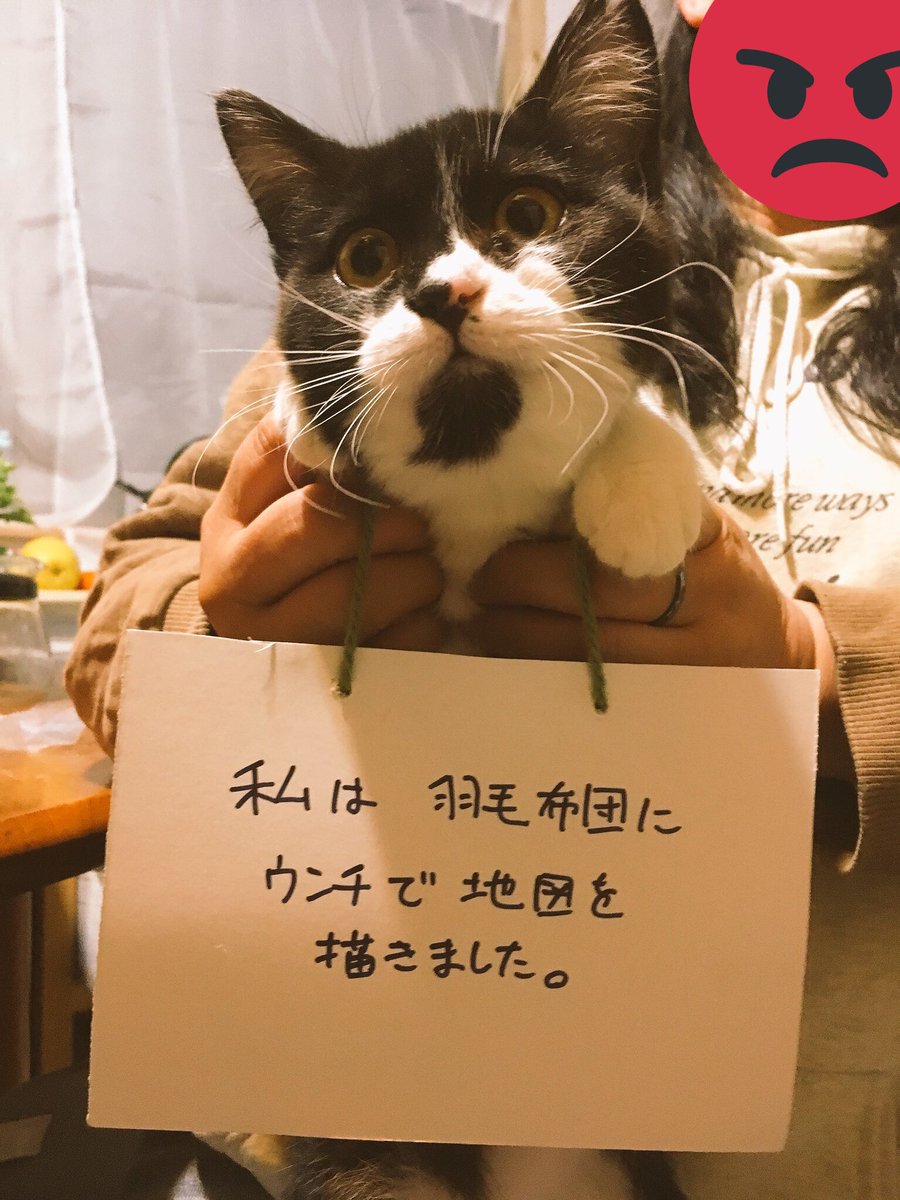 more ways
ore fun
私は 羽毛布団に
ウンチで 地図を
描きました。